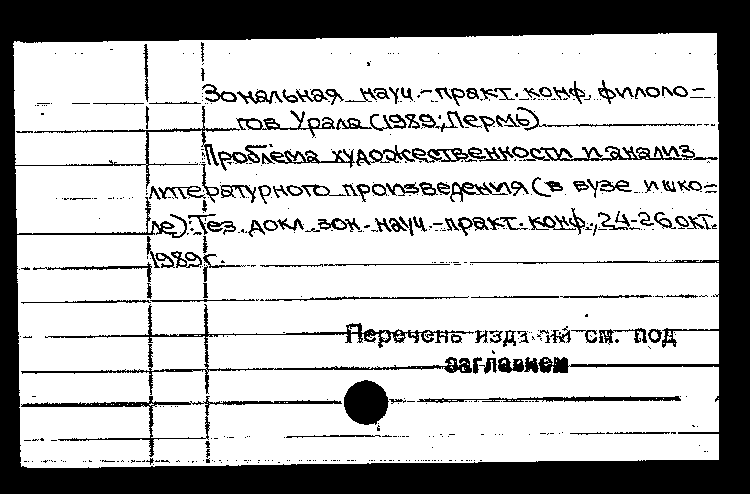 Зональная науч.-практ. конф. филоло-
гов Урала (1989; Пермь)
Проблема художественности и анализ
литературного произведения (в вузе и шко-
ле): Тез. докл. зон. науч.-практ. конф., 24-26 окт.
1989 г.
Перечень изданий см. под
заглавием